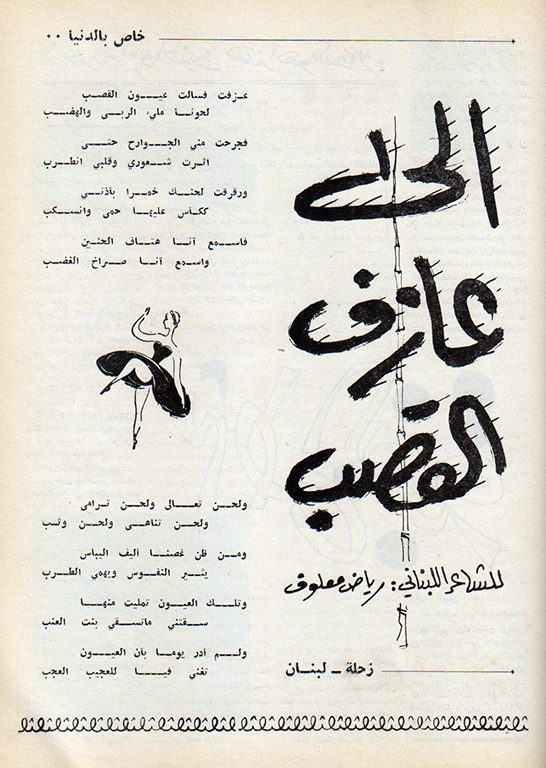 خاص بالدنيا ٠٠
الى
عازف
القصب
للشاعر اللبناني: رياض معلوف
زحلة - لبنان
عزفت فسالت عيون القصب
لحونا ملىء الربى والهضب
فجرحت مني الجوارح حتى
اثرت شعوري وقلبي انطرب
ورقرقت لحنك خمرا بأذني
ككأس عليها حمى وانسكب
فاسمع آنا هتاف الحنين
واسمع آنا صراخ الغضب
ولحن تعالى ولحن ترامى
ولحن تناهى ولحن وثب
ومن ظن غصنا أليف اليباس
يثير النفوس ويهمي الطرب
وتلك العيون تمليت منها
سقتني ماتسقي بنت العنب
ولم أدر يوما بأن العيون
تغني فيا للعجيب العجب